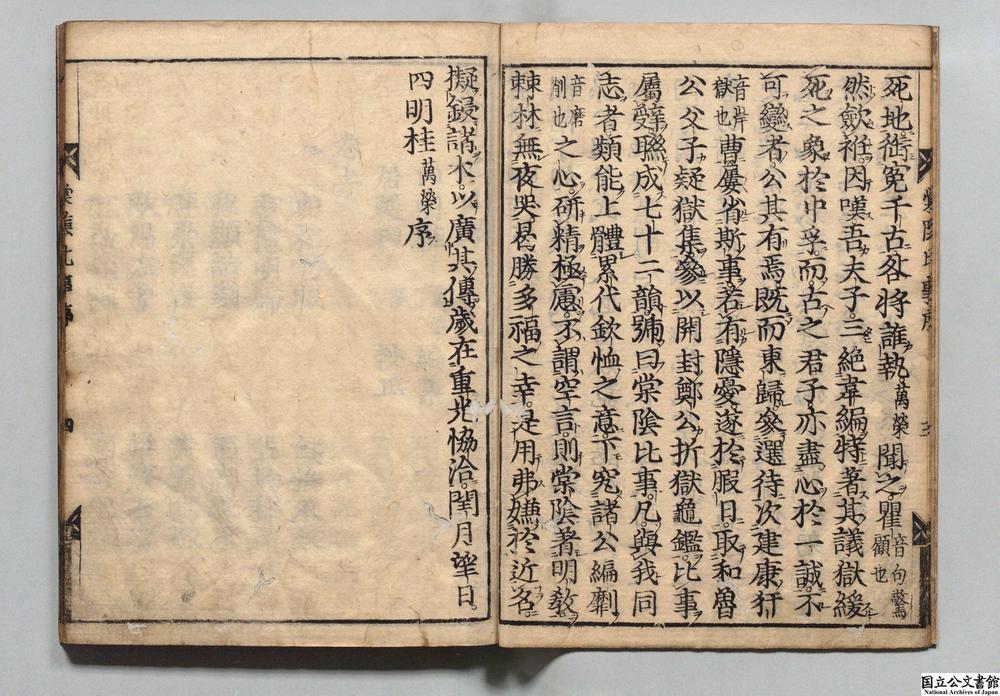 死地銜冤千古咎將誰執萬榮聞之瞿音句驚顧也
然斂袵因嘆吾夫子三絶韋編特著其議獄緩
死之象於中孚而古之君子亦盡心於一誠不
可變者公其有焉既而東歸參選待次建康犴音岸
獄也曹屢省斯事若有隱憂遂於暇日取和魯
公父子疑獄集參以開封鄭公折獄龜鑑比事
屬辭聯成七十二韻號曰棠陰比事凡與我同
志者類能上體累代欽恤之意下究諸公編劘音磨
削也之心研精極慮不謂空言則棠陰著明教
棘林無夜哭曷勝多福之幸是用弗嫌於近名
擬錽諸木以廣其傳歲在重光協洽閏月望日
四明桂萬榮序
棠陰比事序
三
棠陰比事序
四
国立公文書館
National Archives of Japan